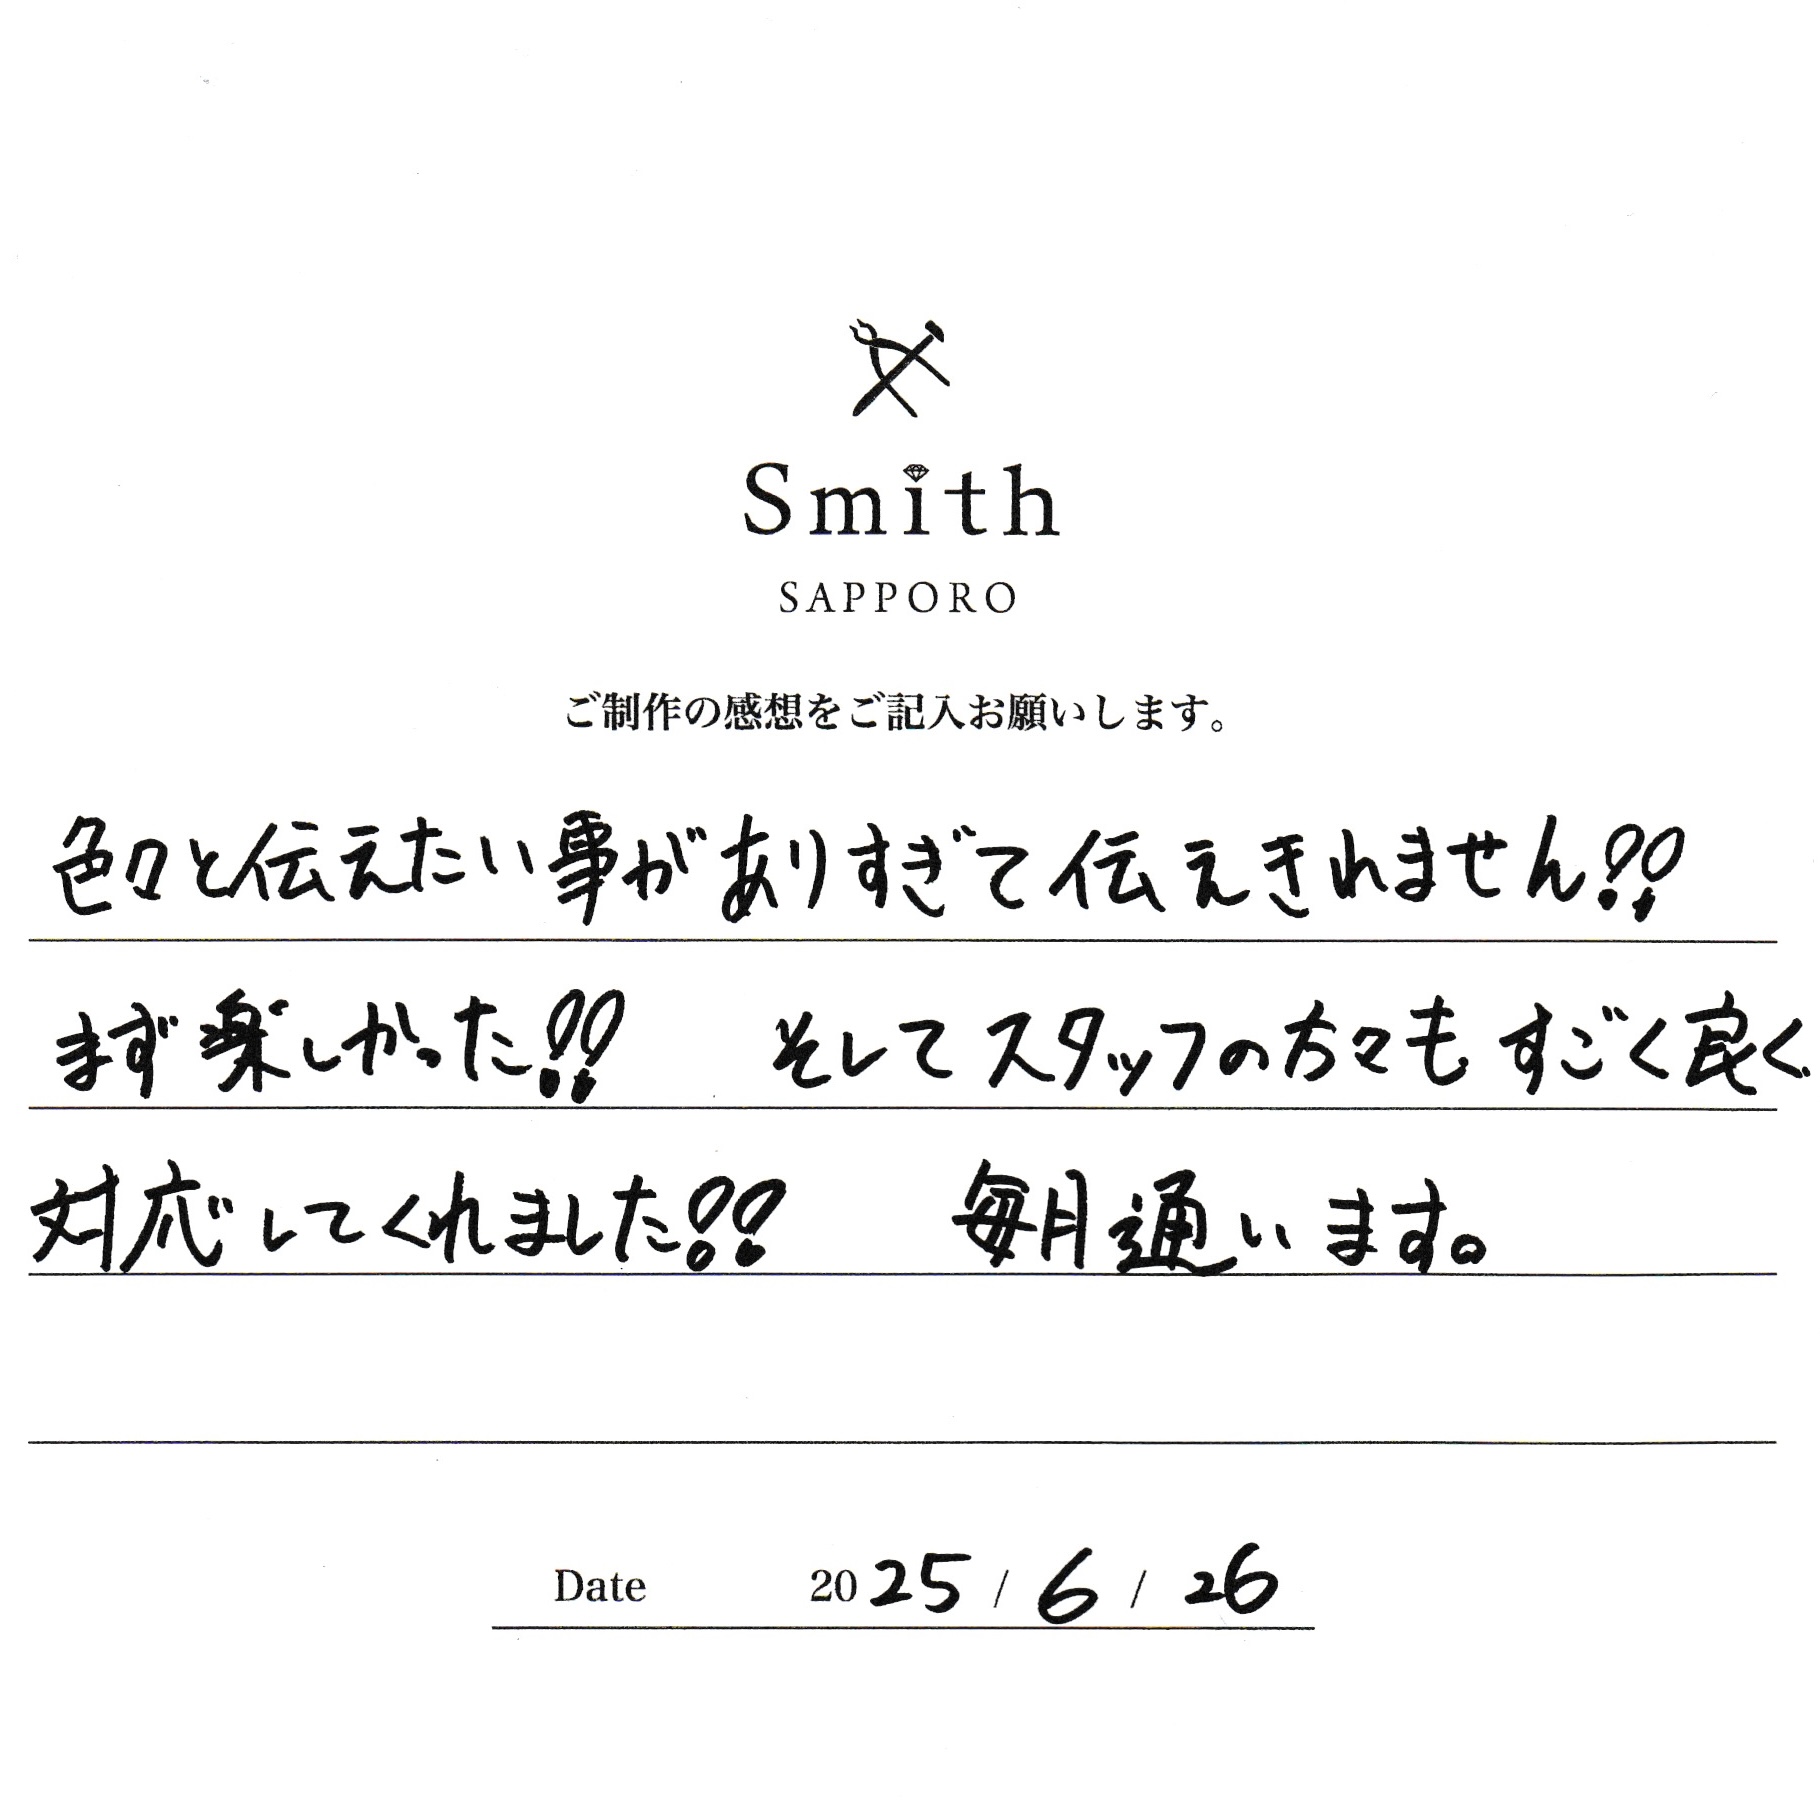 Smith
SAPPORO
ご制作の感想をご記入お願いします。
色々と伝えたい事がありすぎて伝えきれません!!
まず楽しかった!! そしてスタッフの方々もすごく良く
対応してくれました!! 毎月通います。
Date 2025 / 6 / 26